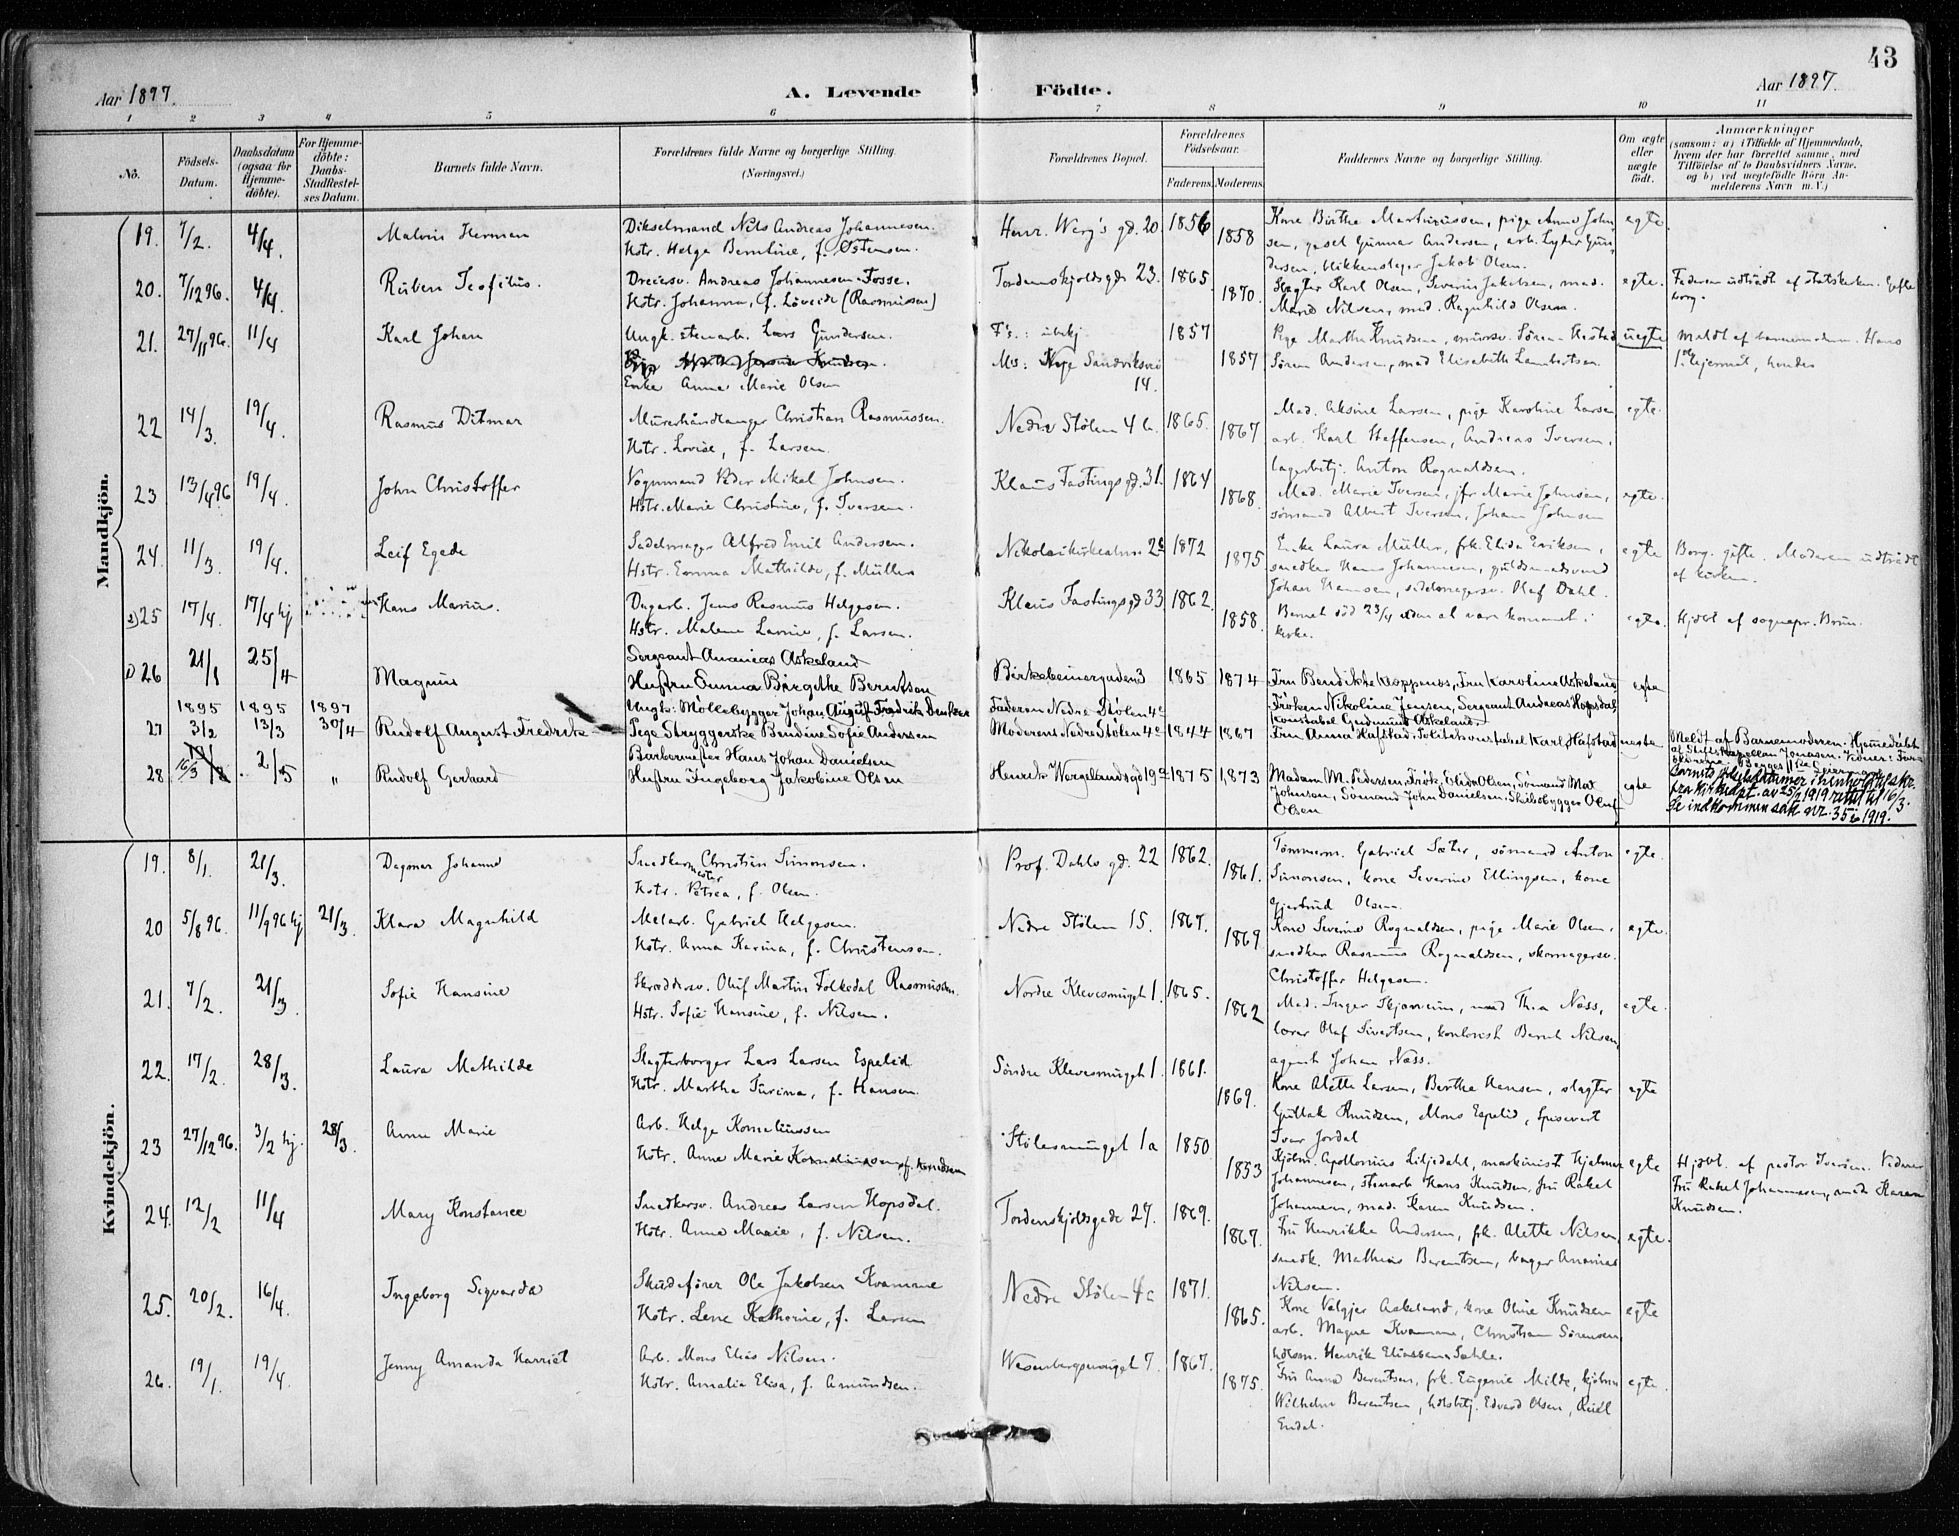 43
Aar 1897.
A. Levende
Födte.
Aar 1897.
1 2 3 4 5 6 7 8 9 10 11
No.
Födsels-Datum.
Daabsdatum (ogsaa for Hjemme-döbte).
For Hjemme-döbte: Daabs-Stadfæstel-ses Datum.
Barnets fulde Navn.
Forældrenes fulde Navne og borgerlige Stilling.
(Næringsvei.)
Forældrenes Bopæl.
Forældrenes Födselsaar.
Faderens. Moderens.
Faddernes Navne og borgerlige Stilling.
Om ægte eller uægte födt.
Anmærkninger
(saasom: a) i Tilfælde af Hjemmedaab, hvem der har forrettet samme, med Tilföielse af to Daabsvidners Navne, og b) ved uægtefödte Börn An-melderens Navn m. V.)
Mandkjön.
19. 7/2. 4/4. Malvin Herman
Dikselmand Nils Andreas Johannesen.
Hstr. Helga Berntine, f. Østensen.
Henr. Werg's gd. 20. 1856 1858
Kone Birthe Martinussen, pige Anna John
sen, gasel Gunnar Andersen, arb. Lyder Gun
dersen, blikkenslager Jakob Olsen.
egte.
20. 7/12 96. 4/4. Ruben Teofilus.
Dreiersv. Andreas Johannesen Fosse.
Hstr. Johanna, f. Löveide (Rasmussen)
Tordenskjoldsgd. 23. 1865 1870.
Slagter Karl Olsen, Severin Jakobsen, mad.
Marie Nilsen, mad. Ragnhild Olsen.
egte.
Faderen udtraadt af statskirken. Gifte
borg.
21. 27/11 96. 11/4 Karl Johan
Ungk. stenarb. Lars Gundersen.
Enke Anna Marie Olsen
F's.: ubekj.
Ms: Nye Sandviksvei
14.
1857 1857
Pige Martha Knudsen, murersv. Sören Hestad
Sören Andersen, mad Elisabeth Lambertsen
uegte
Meldt af barnemoderen. Hans
1ste leiermaal, hendes
22 14/3. 19/4. Rasmus Ditmar
Murerhåndlanger Christian Rasmussen.
Hstr. Lovise, f. Larsen.
Nedre Stölen 4 b. 1865. 1867
Mad. Aksine Larsen, pige Karoline Larsen
arb. Karl Steffensen, Andreas Iversen,
lagerbetj. Anton Rognaldsen.
egte.
23 13/4 96 19/4. John Christoffer
Vognmand Peder Mikal Johnsen.
Hstr. Marie Christine, f. Iversen.
Klaus Fastings gd. 31. 1864 1868.
Mad. Marie Iversen, jfr Marie Johnsen,
sömand Albert Iversen, Johan Johnsen
egte.
24. 11/3. 19/4. Leif Egede
Sadelmager Alfred Emil Andersen.
Hstr. Emma Mathilde, f. Müller
Nikolaikirkealm. 2 1872 1875
Enke Laura Müller, frk. Elida Eriksen,
snedker Hans Johannesen, guldsmedsvend
Johan Hansen, sadelmagersv. Olaf Dahl.
egte
Borg. gifte. Moderen udtrådt
af kirken.
2) 25 17/4. 17/4 hj Hans Marius.
Dagarb. Jens Rasmus Helgesen.
Hstr. Malene Lavine, f. Larsen.
Klaus Fastings gd 33 1862. 1858.
Barnet död 23/4 uden at være kommet i
kirke.
egte.
Hjdbt af sognepr. Brun.
1) 26 21/1 25/4 Magnus
Sergeant Ananias Askeland
Hustru Emma Birgithe Berntsen
Birkebeinergaden 3 1865 1874
Fru Bendikte Koppenes, Fru Karoline Askeland
Fröken Nikoline Jensen, Sergeant Andreas Hopsdal,
Konstabel Gudmund Askeland.
egte
1895 1895 1897
27 31/2 13/3 30/4 Rudolf August Fredrik
Ungk: Möllebygger Johan August Fredrik Denker
Pige Stryggerske Bendine Sofie Andersen
Faderen Nedre Stölen 4c
Moderens Nedre Stölen 4c 1844 1867
Fru Anna Hafstad, Politikonstabel Karl Hafstad
uegte
Meldt af Barnemoderen. Hjemmedöbt
af Stiftskapellan Jonassen.
28 16/3 2/5 " Rudolf Gerhard
Barbermester Hans Johan Danielsen
Hustru Ingeborg Jakobine Olsen
Henrik Wergelandsgd 19a 1875 1873
Madam M. Pedersen, Frök. Elida Olsen, Sömand Mat
Johnsen, Sömand John Danielsen, Skibsbygger Oluf
Olsen
egte
Barnets födselsdatum er i henhold til skr.
fra Kirkedpt. av 25/2 1919 rettet til 16/3.
Se indkommen sak nr. 35 i 1919.
Kvindekjön.
19. 8/1. 21/3. Dagmar Johanne
Snedkermester Christian Simonsen.
Hstr. Petrea, f. Olsen.
Prof. Dahls gd. 22 1862. 1861.
Tömmerm. Gabriel Sæter, sömand Anton
Simonsen, kone Severine Ellingsen, kone
Gjertrud Olsen.
egte.
20 5/8 96. 11/9 96 hj 21/3. Klara Magnhild
Melarb. Gabriel Helgesen.
Hstr. Anna Karina, f. Christensen.
Nedre Stölen 15. 1867. 1869
Kone Severine Rognaldsen, pige Marie Olsen,
snedker Rasmus Rognaldsen, skomagersv.
Christoffer Helgesen.
egte.
21. 7/2. 21/3. Sofie Hansine
Skræddersv. Oluf Martin Folkedal Rasmussen.
Hstr. Sofie Hansine, f. Nilsen.
Nordre Klevesmuget 1. 1865. 1862
Mad. Inger Skjerveim, mad Thea Næss,
lærer Olaf Sivertsen, kontorist Bernt Nilsen,
agent Johan Næss.
egte.
22. 17/2. 28/3. Laura Mathilde
Slagterborger Lars Larsen Espelid
Hstr. Martha Turina, f. Hansen.
Söndre Klevesmuget 1. 1861. 1869.
Kone Alette Larsen, Berthe Hansen, slagter
Gullak Knudsen, Mons Espelid, spisevert
Ivar Jordal
egte
23 27/12 96. 3/2 hj. 28/3. Anne Marie
Arb. Helge Korneliussen
Hstr. Anne Marie Korneliussen f. Knudsen
Stölesmuget 1a 1850 1853
Kjölm. Apollonius Liljedahl, maskinist Hjalmar
Johannesen, stenarb Hans Knudsen, fru Rakel
Johannesen, mad. Karen Knudsen.
egte
Hjdbt. af pastor Iversen. Vidner
Fru Rakel Johannessen, mad. Karen
Knudsen.
24. 12/2 11/4 Mary Konstance
Snedkersv. Andreas Larsen Hopsdal.
Hstr. Anna Marie, f. Nilsen.
Tordenskjoldsgade 27. 1869. 1867.
Fru Henrikke Andersen, frk. Alette Nilsen,
snedk. Mathias Berentsen, bager Ananias
Nilsen.
egte.
25. 20/2. 16/4. Ingeborg Sigvarda
Skudefører Ole Jakobsen Kvamme
Hstr. Lene Katherine, f. Larsen
Nedre Stölen 4c 1871. 1865.
Kone Valgjer Askeland, kone Oline Knudsen
arb. Magne Kvamme, Christian Sörensen,
Henrik Eliassen Sæhle.
egte
26. 19/1. 19/4. Jenny Amanda Harriet
Arb. Mons Elias Nilsen.
Hstr. Amalia Elisa, f. Amundsen.
Wesenbergsmuget 7. 1867. 1875.
Fru Anna Berentsen, frk. Eugenie Milde, kjölm
Wilhelm Berentsen, toldbetj. Edvard Olsen,
Endal.
egte.